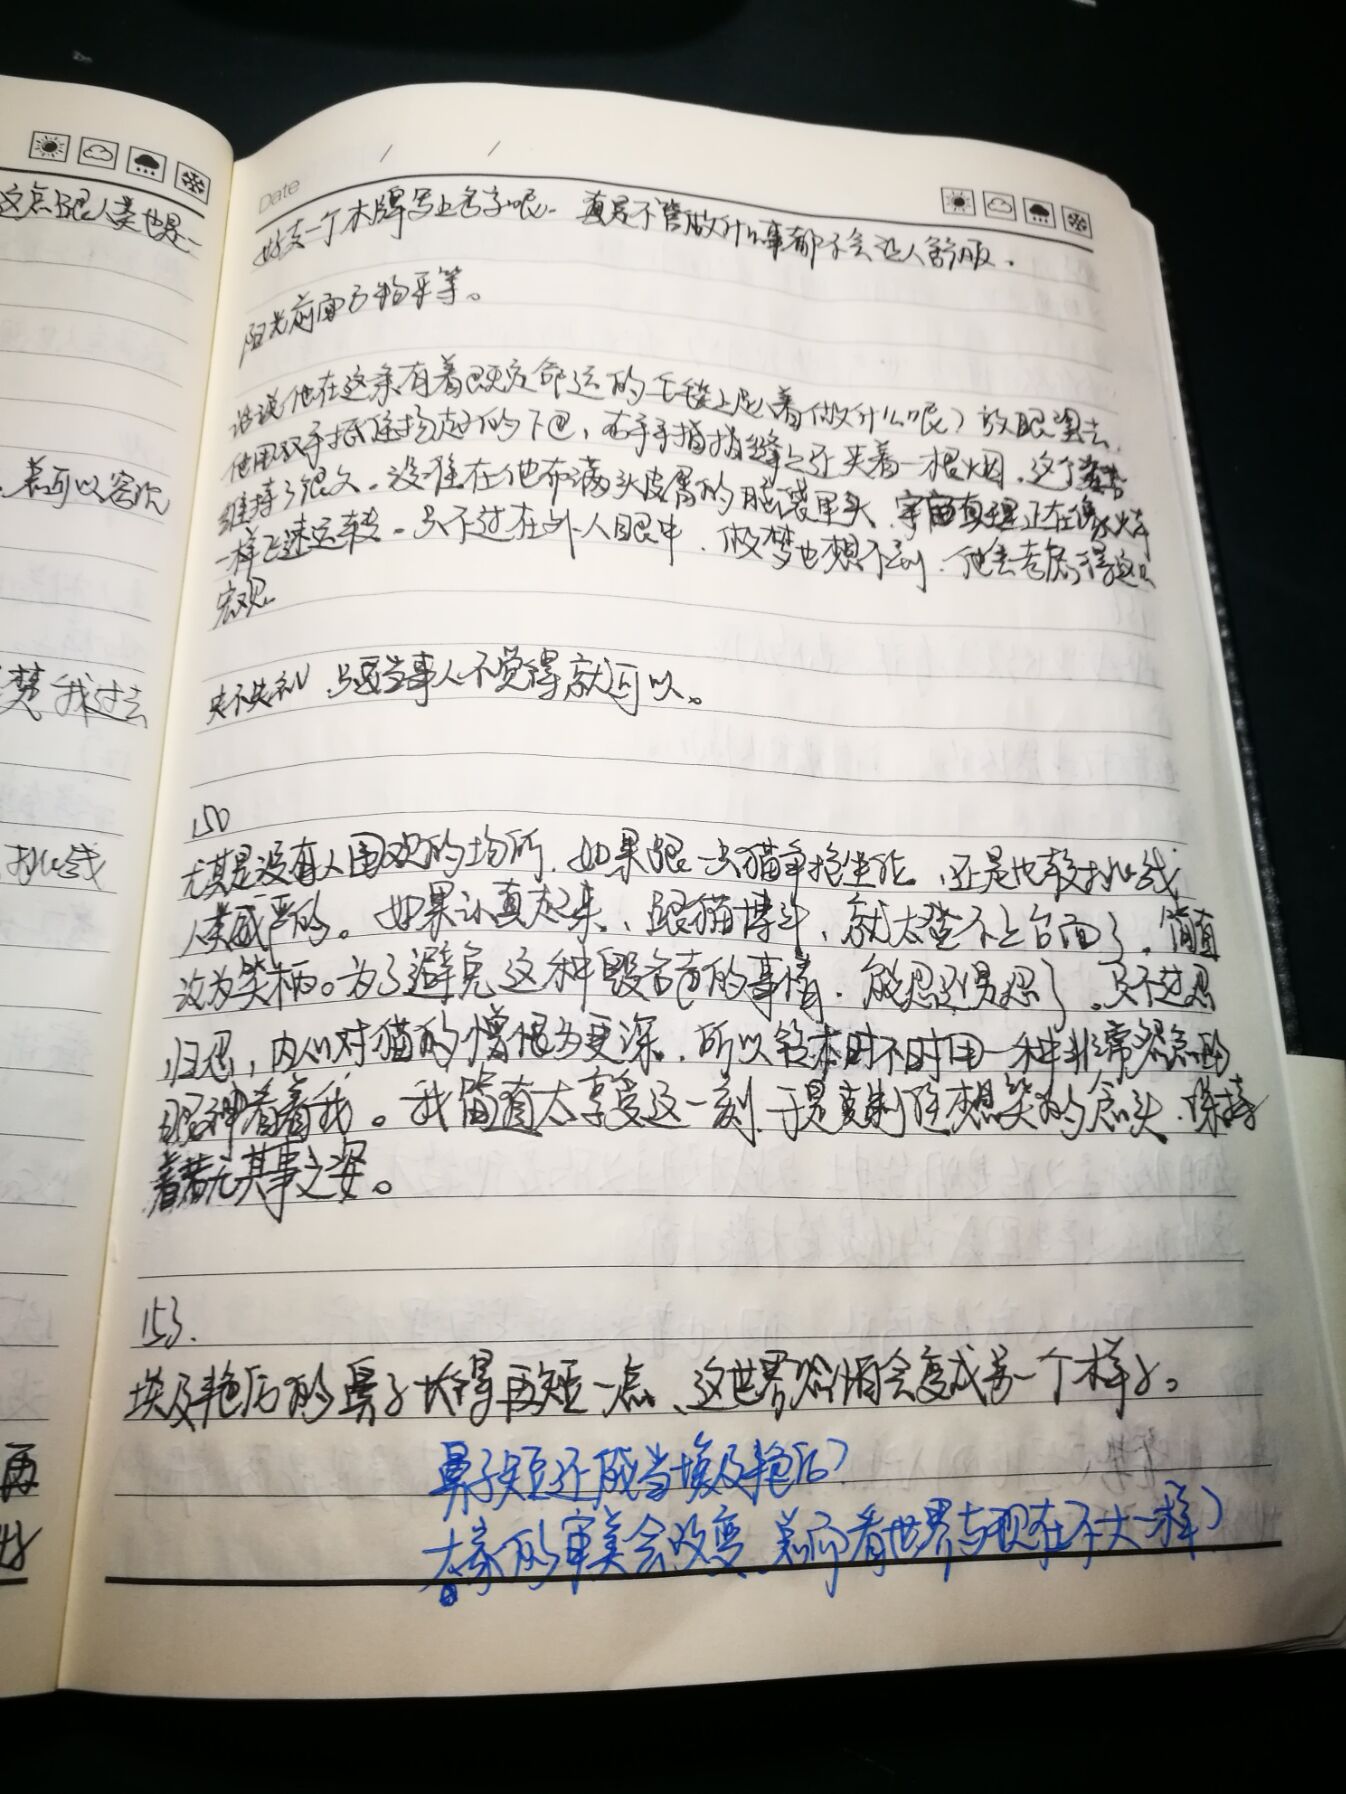 这点跟人类也是一
若可以容忍
梦我过去
挑战
再
Date
好去一个木牌写上名字呢。真是不管做什么事都不会让人舒服。
阳光前面万物平等。
话说他在这条有着既定命运的毛毯上趴着做什么呢？放眼望去，
他用双手抵住扬起的下巴，右手手指指缝之还夹着一根烟。这个
维持了很久。没准在他布满头皮屑的脑袋里头，宇宙真理正在像火车
一样飞速运转。只不过在外人眼中，做梦也想不到，他会考虑得这么
宏观。
失不失礼，只要当事人不觉得就可以。
150
尤其是没有人围观的场所，如果跟一只猫争抢坐位，还是比较挑战
人类威严的。如果认真起来，跟猫博斗，就太登不上台面了，简直
沦为笑柄。为了避免这种毁名声的事情，能忍还得忍了。只不过忍
归忍，内心对猫的憎恨为更深。所以铃木时不时用一种非常怨念的
眼神看着我。我简直太享受这一刻，于是克制住想笑的念头，保持
着若无其事之姿。
153.
埃及艳后的鼻子长得再短一点，这世界恐怕会变成另一个样子。
鼻子短还能当埃及艳后？
大家的审美会改变，美所看世界与现在不大一样？